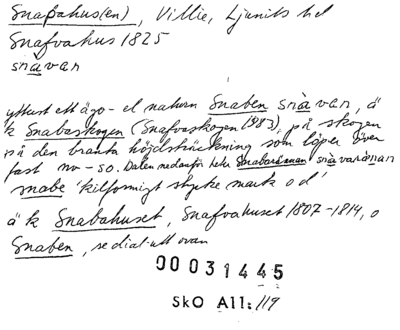 Snabahus(en), Villie, Ljunits hd
Snafvahus 1825
snàvan
ytterst ett ägo- el naturn Snaben snàvan, ä
k Snabaskogen (Snafvaskogen 1983), på skogen
på den branta höjdsträckning som löper över
fast nv - so. Dalen nedanför heter Snabarännan
snabe 'kilformigt stycke mark o d'
ä k Snabahuset, Snafvahuset 1807-1814, o
Snaben, se dial-utt ovan
00031445
SkO All: 119